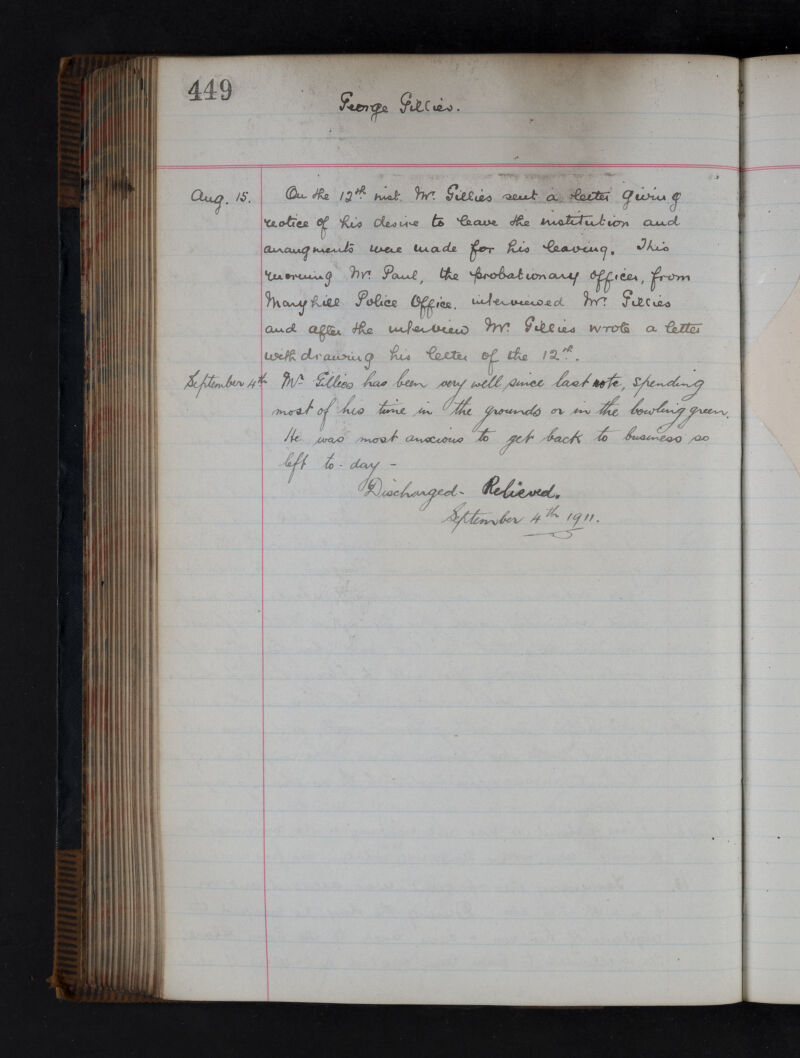 449
George Gillies.
Aug. 15. On the 12th inst. Mr. Gillies sent a letter giving
notice of his desire to leave the institution and
arrangments were made for his leaving. This
morning Mr. Paul, the probationary officer, from
Maryhill Police Office. interviewed Mr. Gillies
and after the interview Mr. Gillies wrote a letter
withdrawing his letter of the 12th.
September 4th Mr Gillies has been very well since last note, spending
most of his time in the grounds or in the bowling green.
He was most anxious to get back to business so
left to-day -
Discharged - Relieved.
September 4th 1911.